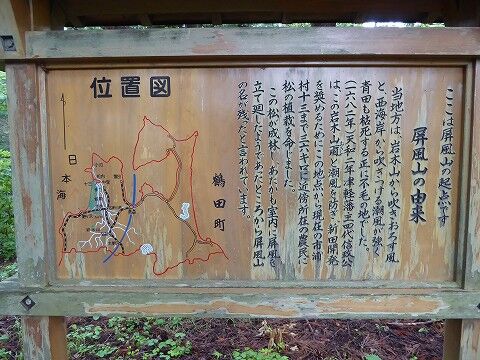 ここは屏風山の起点です
屏風山の由来
当地方は、岩木山から吹きおろす風
と、西海岸から吹きつける潮風が強く
青田も枯死する正に不毛の地でした。
(一六八二年)天和二年津軽藩主四代信政公
は、この岩木山颪と潮風を防ぎ、新田開発
を換るためにこの地点から現在の市浦
村十三まで三二キロに近傍所在の農民に
松の植栽を命じました。
この松が成林しあたかも室内に屏風を
立て廻したようであったところから屏風山
の名が残ったと言われています。
位置図
日本海
鶴田町